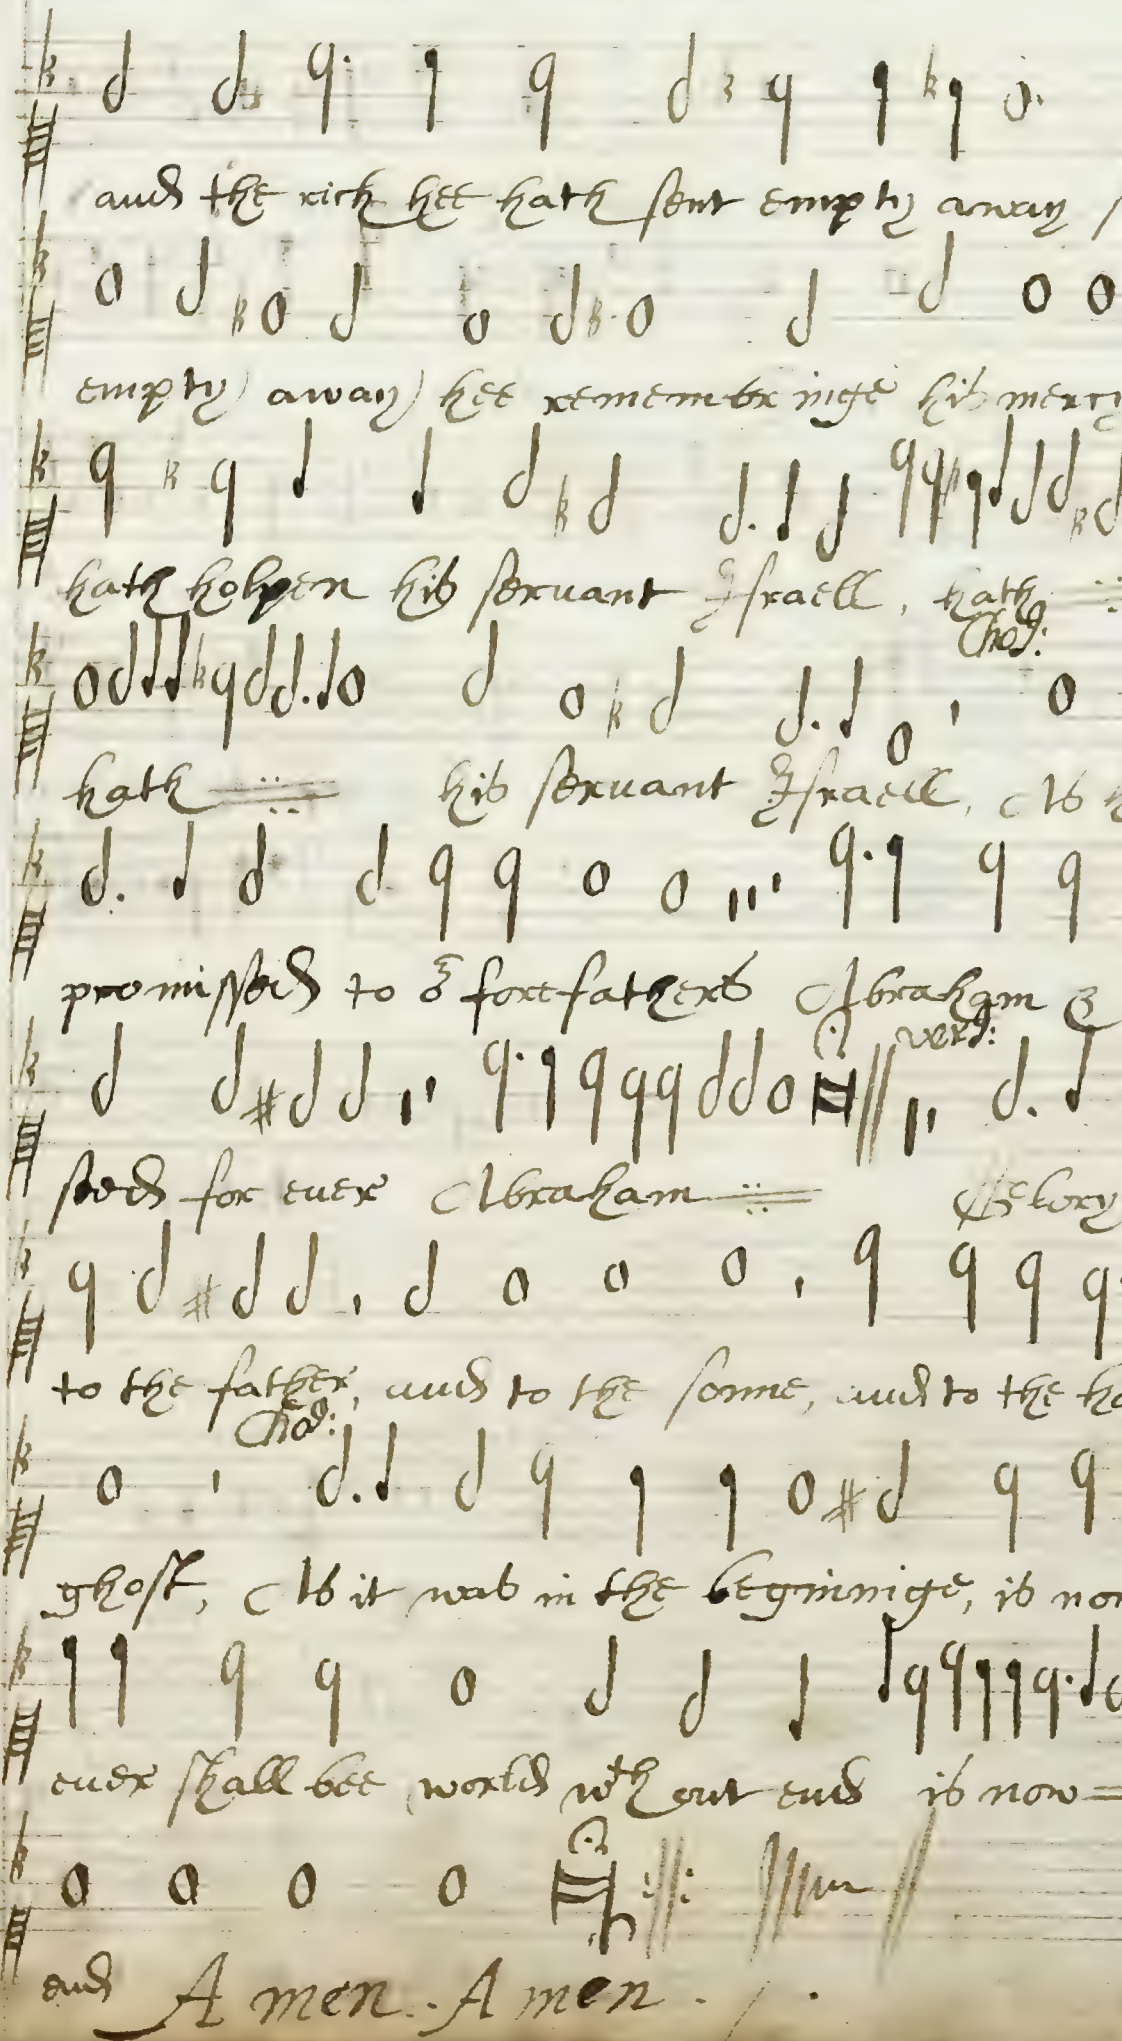 and the rich hee hath sent empty away
empty away hee remembringe his mercy
hath holpen his servant Israell, hath
Cho:
hath his servant Israell, As
promissed to or forefathers Abraham &
vers:
seed for euer Abraham Glory
to the father, and to the sonne, and to the ho
Cho:
ghost, As it was in the beginnige, is now
euer shall bee world wth out end is now
end Amen. Amen.